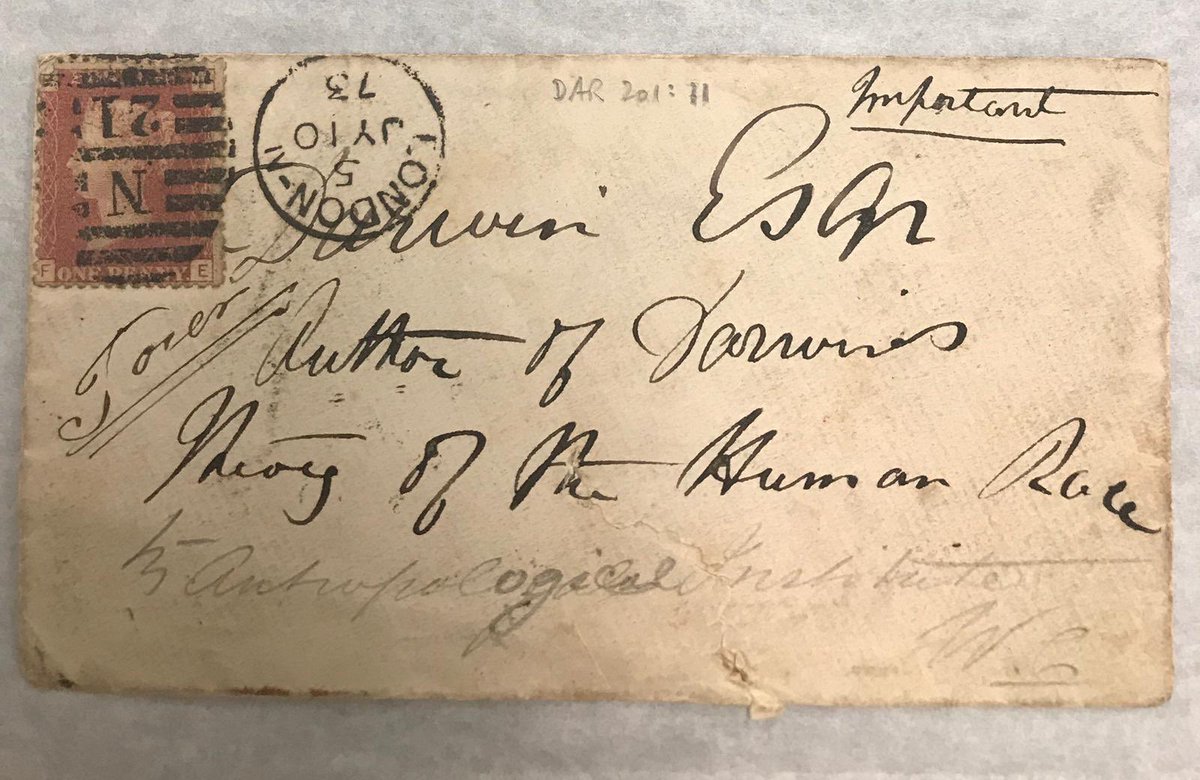 DAR 201: 11
Important
LONDON-N
5
JY 10
73
N
21
F ONE PENNY E
Darwin Esqr
Over
Author of Darwins
Theory of the Human Race
Antropological Institute
W.C